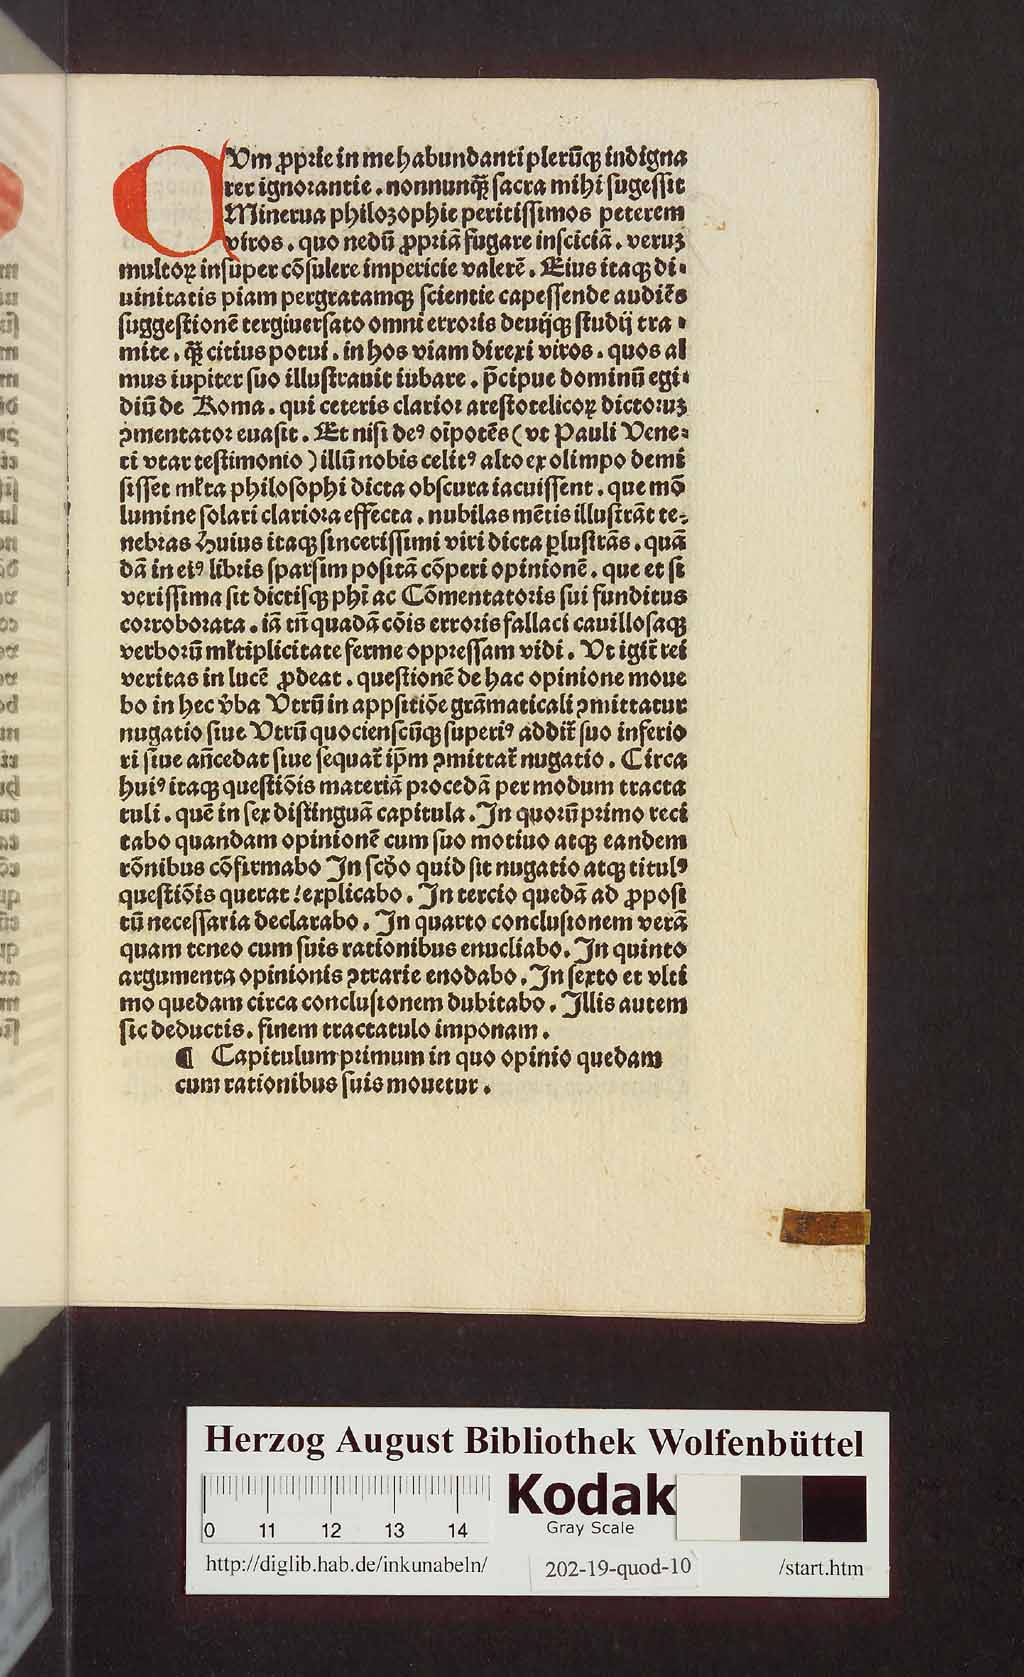 CUm ꝓprie in me habundanti plerūqꝫ indigna
rer ignorantie . nonnunq̄ꝫ sacra mihi sugessit
Minerua philozophie peritissimos peterem
viros . quo nedū ꝓpriā fugare insciciā . veruꝫ
multoꝝ insuper cōsulere impericie valerē . Eius itaqꝫ di⸗
uinitatis piam pergratamqꝫ scientie capessende audiēs
suggestionē tergiuersato omni erroris deuijqꝫ studij tra⸗
mite . q̄ꝫ citius potui . in hos viam direxi viros . quos al
mus iupiter suo illustrauit iubare . p̄cipue dominū egi⸗
diū de Roma . qui ceteris clarior arestotelicoꝝ dictoruꝫ
ꝯmentator euasit . Et nisi deꝰ oīpotēs ( vt Pauli Vene⸗
ti vtar testimonio ) illū nobis celitꝰ alto ex olimpo demi
sisset mľta philosophi dicta obscura iacuissent . que mō
lumine solari clariora effecta . nubilas mētis illustrāt te⸗
nebras Huius itaqꝫ sincerissimi viri dicta ꝑlustrās . quā
dā in eiꝰ libris sparsim positā cōperi opinionē . que et si
verissima sit dictisqꝫ phī ac Cōmentatoris sui funditus
corroborata . iā tn̄ quadā cōis erroris fallaci cauillosaqꝫ
verborū mľtiplicitate ferme oppressam vidi . Vt igit̄ rei
veritas in lucē ꝓdeat . questionē de hac opinione moue
bo in hec v̄ba Vtrū in appsitiōe grāmaticali ꝯmittatur
nugatio siue Vtrū quocienscūqꝫ superiꝰ addit̄ suo inferio
ri siue an̄cedat siue sequat̄ ip̄m ꝯmittat̄ nugatio . Circa
huiꝰ itaqꝫ questiōis materiā procedā per modum tracta
tuli . quē in sex distinguā capitula . In quorū primo reci
tabo quandam opinionē cum suo motiuo atqꝫ eandem
rōnibus cōfirmabo In scd̄o quid sit nugatio atqꝫ titulꝰ
questiōis querat ! explicabo . In tercio quedā ad ꝓposi
tū necessaria declarabo . In quarto conclusionem verā
quam teneo cum suis rationibus enucliabo . In quinto
argumenta opinionis ꝯtrarie enodabo . In sexto et vlti
mo quedam circa conclusionem dubitabo . Illis autem
sic deductis . finem tractatulo imponam .
¶ Capitulum primum in quo opinio quedam
cum rationibus suis mouetur .
Herzog August Bibliothek Wolfenbüttel
Kodak
Gray Scale
0 11 12 13 14
http://diglib.hab.de/inkunabeln/ 202-19-quod-10 /start.htm